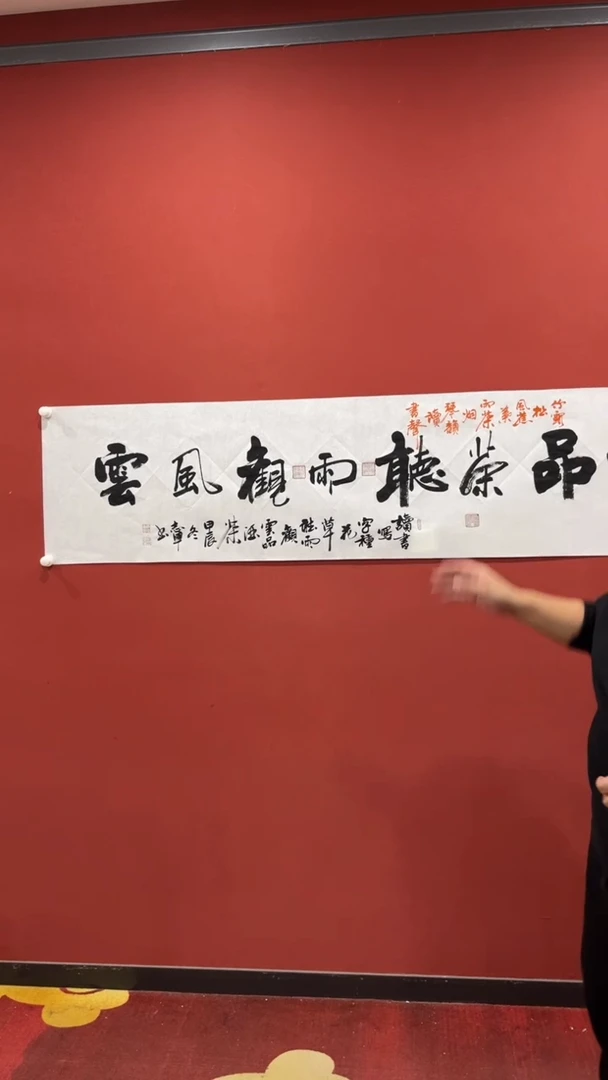 竹窗松風蕉葉雨茶烟琴韻讀書聲
品茶聽雨觀風雲
讀書寫字種花草聽雨觀雲品酒茶甲辰冬